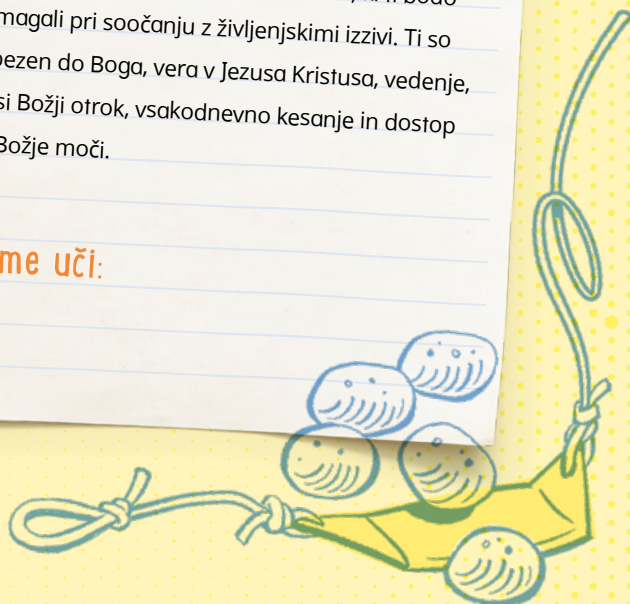 magali pri soočanju z življenjskimi izzivi. Ti so
do Boga, vera v Jezusa Kristusa, vedenje,
si Božji otrok, vsakodnevno kesanje in dostop
Božje moči.
me uči: